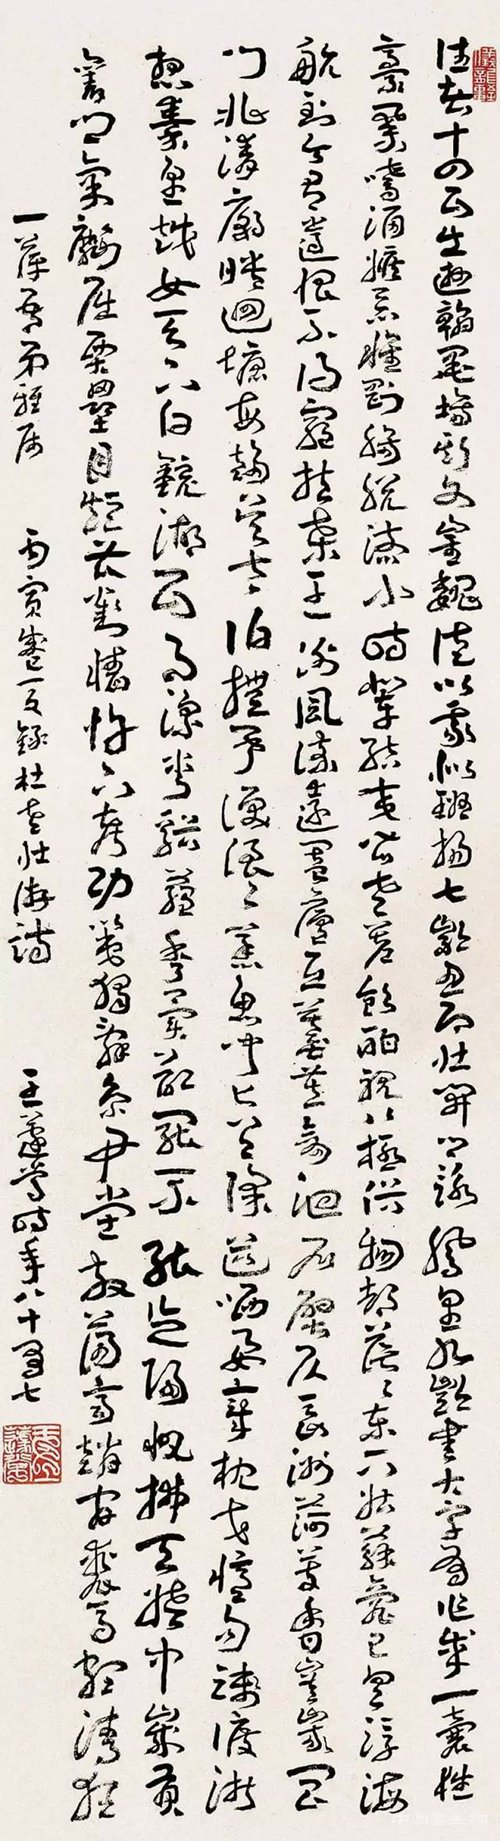 往者十四五出遊翰墨場斯文崔魏徒以我似班揚七齡思即壯開口詠鳳皇九齡書大字有作成一囊性
豪業嗜酒嫉惡懷剛腸脫落小時輩結交皆老蒼飲酣視八極俗物都茫茫東下姑蘇臺已具浮海
航到今有遺恨不得窮扶桑王謝風流遠闔廬丘墓荒劍池石壁仄長洲荷芰香嵯峨閶
門北清廟映迴塘每趨吳太伯撫事淚浪浪蒸魚聞匕首除道哂要章枕戈憶勾踐渡浙
想秦皇越女天下白鏡湖五月涼剡谿蘊秀異欲罷不能忘歸帆拂天姥中歲貢
舊鄉氣劘屈賈壘目短曹劉牆忤下考功第獨辭京尹堂放蕩齊趙間裘馬頗清狂
一萍弟雅屬 丙寅夏錄杜老壯游詩 王蘧常時年八十有七